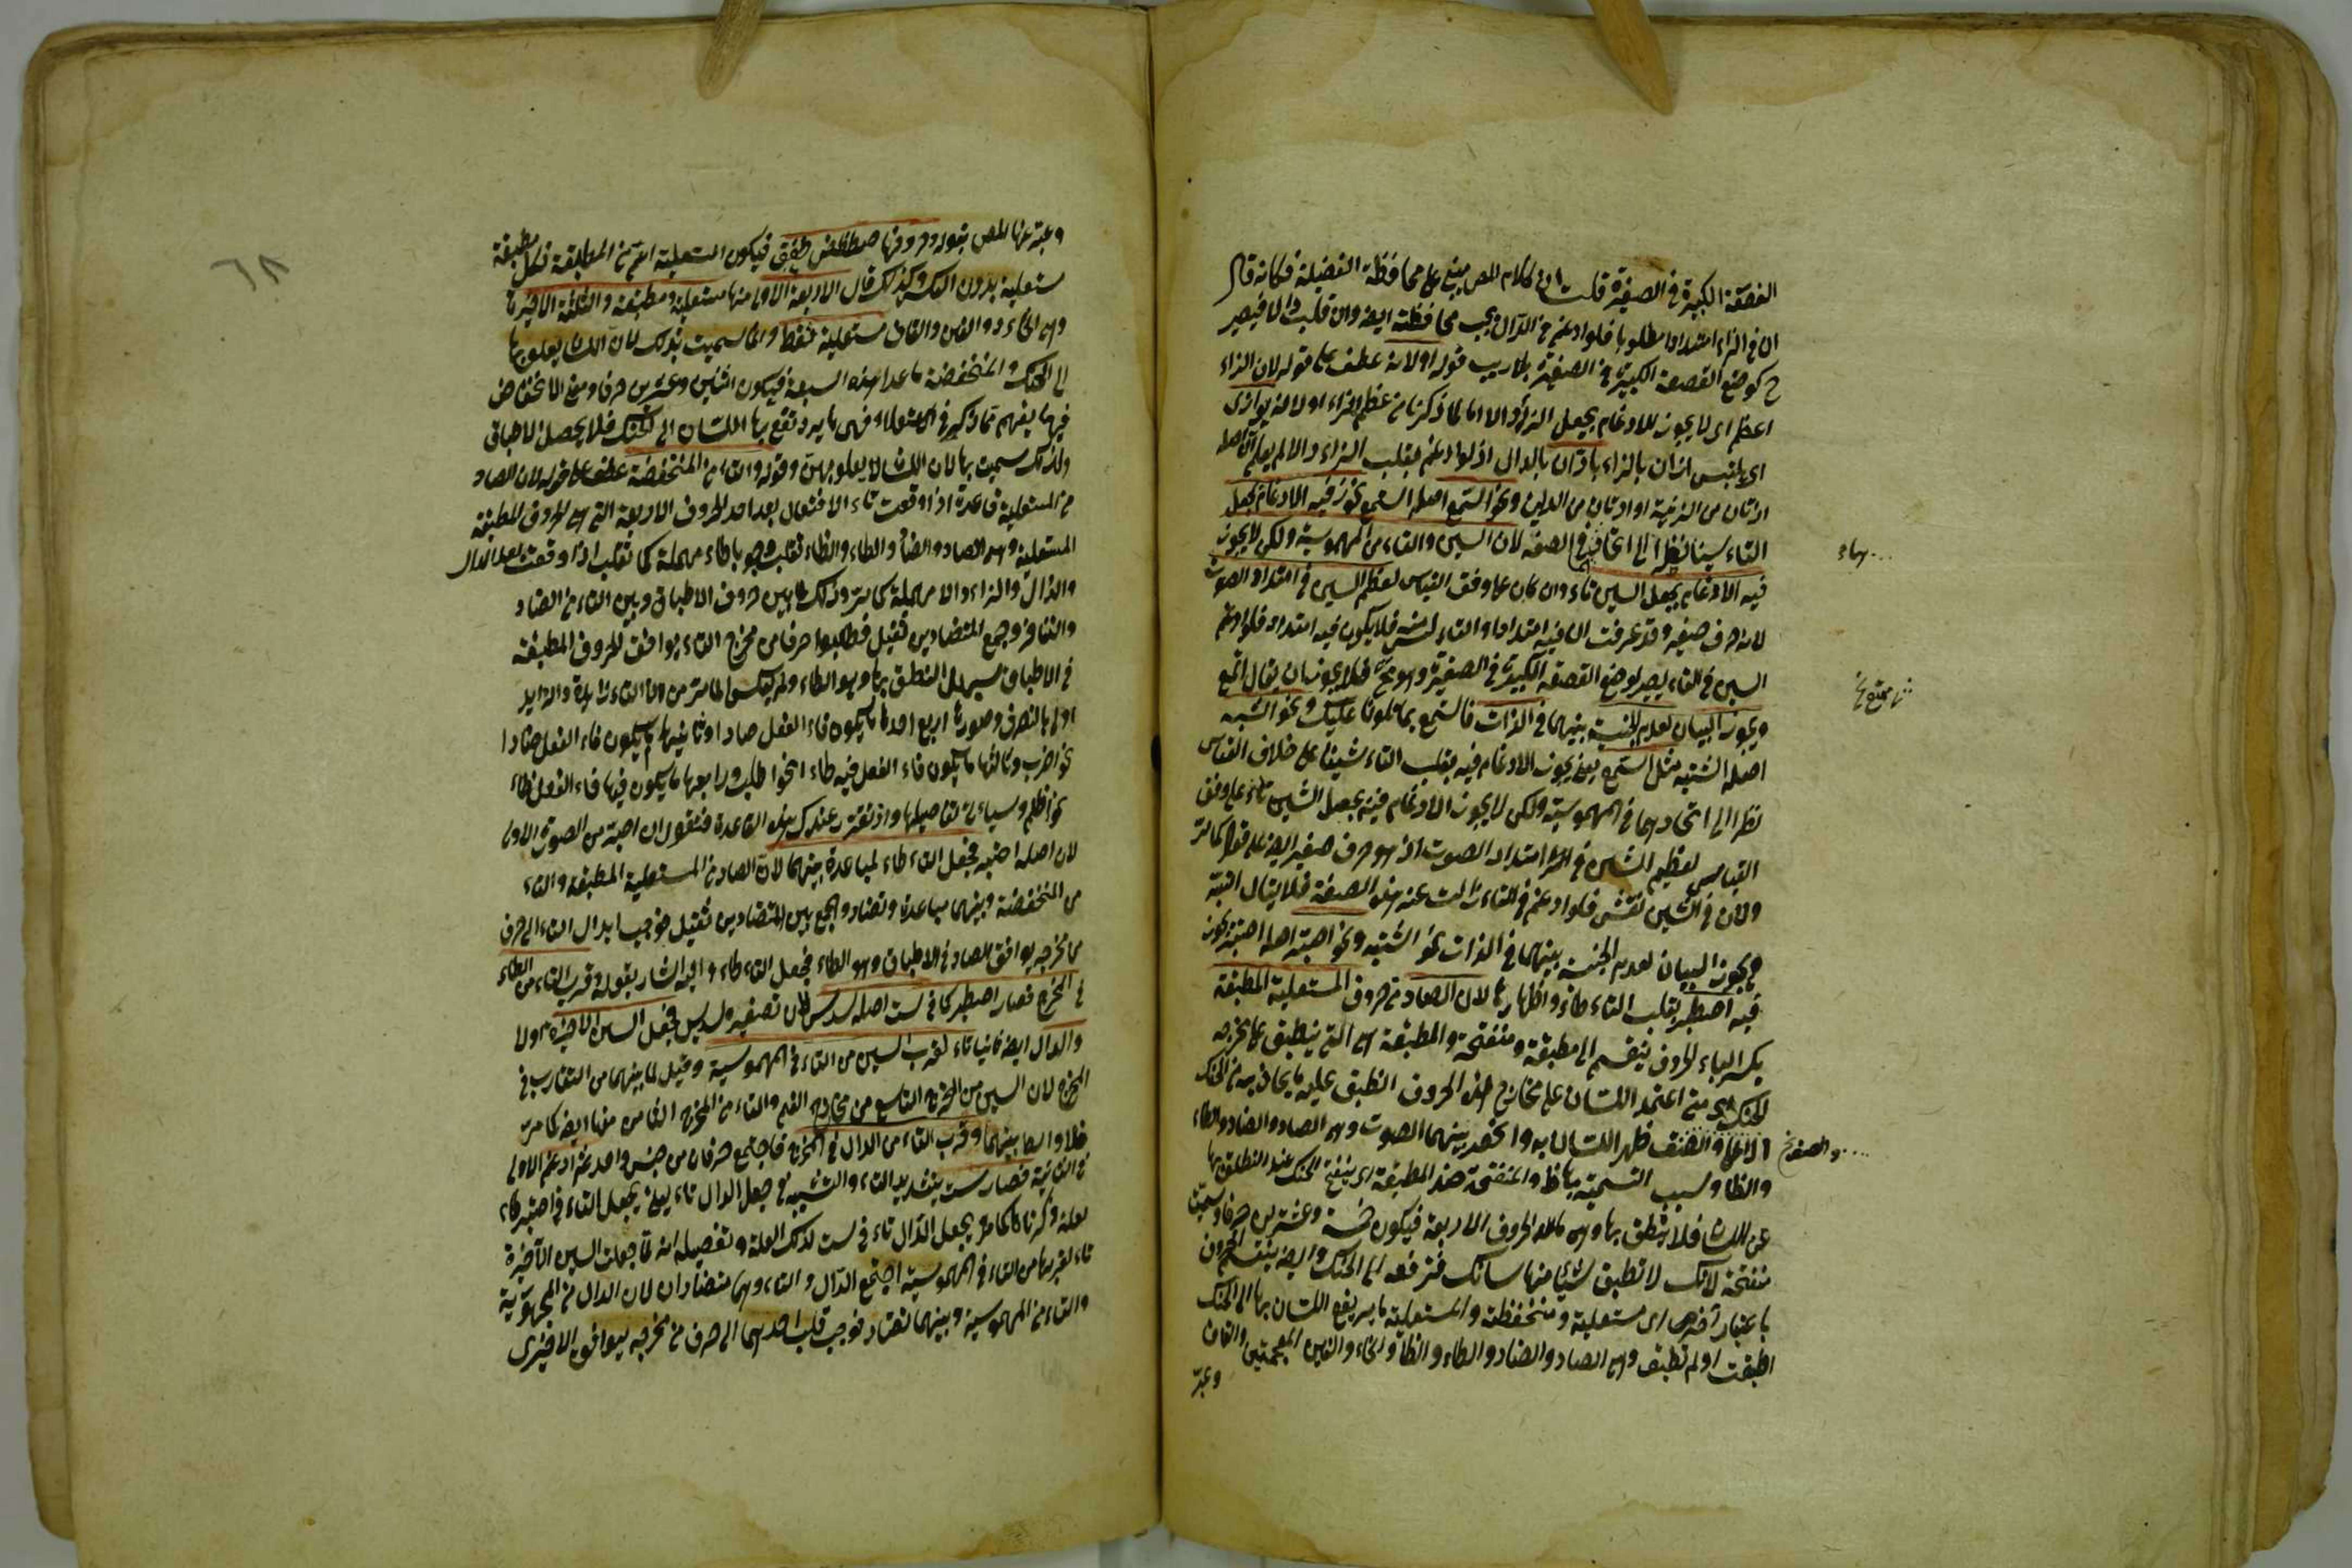 القصعة الكبيرة في الصغيرة قلت ان كلام المص مبني على محافظة الفضيلة فكانه قال
ان في الزاء امتدادا مطلوبا فلو ادغم في الدال يجب محافظته ايضا وان قلبت دالا فيصير
ح كوضع القصعة الكبيرة في الصغيرة قوله او لانه عطف على قوله لان الزاء
اعظم اى لا يجوز الادغام بجعل الزاء دالا اما لما ذكرنا من عظم الزاء او لانه يوازى
اى يلتبس ازان بالزاء بادّان بالدال اذ لو ادغم بقلب الزاء دالا لم يعلم ان اصله
ازتان من الزينة او ادتان من الدين ونحو اسّمع اصله استمع يجوز فيه الادغام بجعل
التاء سينا نظرا الى اتحادهما في الصفة لان السين والتاء من المهموسية ولكن لا يجوز
فيه الادغام بجعل السين تاء وان كان على وفق القياس لعظم السين في امتداد الصوت
لانه حرف صفير وقد عرفت ان فيه امتدادا والتاء ليس منه فلا يكون فيه امتداد فلو ادغم
السين في التاء يصير كوضع القصعة الكبيرة في الصغيرة وهو مح فلا يجوز ان يقال اتّمع
ويجوز البيان لعدم الجنسية بينهما في الذات فاستمع بما نلونا عليك ونحو اشّبه
اصله اشتبه مثل اسّمع يعنى يجوز الادغام فيه بقلب التاء شينا على خلاف القياس
نظرا الى اتحادهما في المهموسية ولكن لا يجوز الادغام فيه بجعل الشين تاء على وفق
القياس لعظم الشين في امتداد الصوت اذ هو حرف صفير ايضا على قول كما مر
ولان في الشين تفشى فلو ادغم في التاء زالت عنه هذه الصفة فلا يقال اتّبه
ويجوز البيان لعدم الجنسية بينهما في الذات نحو اشتبه ونحو اصتبر اصله اصتبر يجوز
فيه اصطبر بقلب التاء طاء واظهارها لان الصاد من حروف المستعلية المطبقة
بكسر الباء الحروف ينقسم الى مطبقة ومنفتحة والمطبقة هى التى ينطبق على مخرجه
الحنك اى متى اعتمد اللسان على مخارج هذه الحروف انطبق عليه ما يحاذيه من الحنك
الاعلى والصق ظهر اللسان به وانحصر بينهما الصوت وهى الصاد والضاد والطاء
والظاء وسبب التسمية بها ظ والمنفتحة ضد المطبقة اى ينفتح الحنك عند النطق بها
عن اللسان فلا ينطبق بها وهى ما عدا الحروف الاربعة فيكون خمسة وعشرين حرفا وسميت
منفتحة لانك لا تطبق شيئا منها لسانك فترفعه الى الحنك وايضا ينقسم الحروف
باعتبار آخر الى مستعلية ومنخفضة والمستعلية ما يرتفع اللسان بها الى الحنك
اطبقت او لم تطبق وهى الصاد والضاد والطاء والظاء والخاء والغين المعجمتين والقاف
وعبر
والصق
٦٨
وعبر عنها المص بقوله وحروفها صطظضخغق فيكون المستعلية اعم من المطبقة فكل مطبقة
مستعلية بدون العكس ولذلك قال الاربعة الاولى منها مستعلية ومطبقة والثلثة الاخيرة
وهى الخاء والغين والقاف مستعلية فقط وانما سميت بذلك لان اللسان يعلو بها
الى الحنك والمنخفضة ما عدا هذه السبعة فيكون اثنين وعشرين حرفا ومعنى الانخفاض
فيها يفهم مما ذكر في الاستعلاء فهى ما يرتفع بها اللسان الى الحنك فلا يحصل الاطباق
ولذلك سميت بها لان اللسان لا يعلو بهن وقوله والتاء من المنخفضة عطف على قوله لان الصاد
من المستعلية قاعدة اذا وقعت تاء الافتعال بعد احد الحروف الاربعة التى هى الحروف المطبقة
المستعلية وهى الصاد والضاد والطاء والظاء تقلب وجوبا طاء مهملة كما تقلب اذا وقعت بعد الدال
والذال والزاء دالا مهملة كما مر وذلك لما بين حروف الاطباق وبين التاء من التضاد
والتنافر وجمع المتضادين ثقيل فطلبوا حرفا من مخرج التاء يوافق الحروف المطبقة
في الاطباق ليسهل النطق بها وهو الطاء ولم يعكس لما مر من ان التاء زايدة والزايد
اولى بالتصرف وصورها اربع احدها ما يكون فاء الفعل صادا وثانيها ما يكون فاء الفعل ضادا
نحو اضرب وثالثها ما يكون فاء الفعل فيه طاء نحو اطلب ورابعها ما يكون فيها فاء الفعل ظاء
نحو اظلم وسيأتى تفاصيلها واذ تقرر عندك هذه القاعدة فنقول ان اصتبر من الصورة الاولى
لان اصله اصتبر فجعل التاء طاء لمباعدة بينهما لان الصاد من المستعلية المطبقة والتاء
من المنخفضة وبينهما مباعدة وتضاد والجمع بين المتضادين ثقيل فوجب ابدال التاء الى حرف
من مخرجه يوافق الصاد في الاطباق وهو الطاء فجعل التاء طاء واليه اشار بقوله وقرب التاء من الطاء
في المخرج فصار اصطبر كما في ست اصله سدس لان تصغيره سديس فجعل السين الاخيرة اولا
والدال ايضا ثانيا تاء لقرب السين من التاء في المهموسية وقيل لما بينهما من التقارب في
المخرج لان السين من المخرج التاسع من مخارج الفم والتاء من المخرج الثامن منها ايضا كما مر
وقرب التاء من الدال في المخرج فاجتمع حرفان من جنس واحد ثم ادغم الاولى
في الثانية فصار ست بتشديد التاء والتشبيه في جعل الدال تاء يعنى يجعل التاء في اصتبر طاء
لعلة ذكرناها كما يجعل الدال تاء في ست لذلك العلة وتفصيله انه لما جعلت السين الاخيرة
تاء لقربها من التاء في المهموسية اجتمع الدال والتاء وهما متضادان لان الدال من المجهورية
والتاء من المهموسية وبينهما تضاد فوجب قلب احدهما الى حرف من مخرجه ليوافق الاخرى